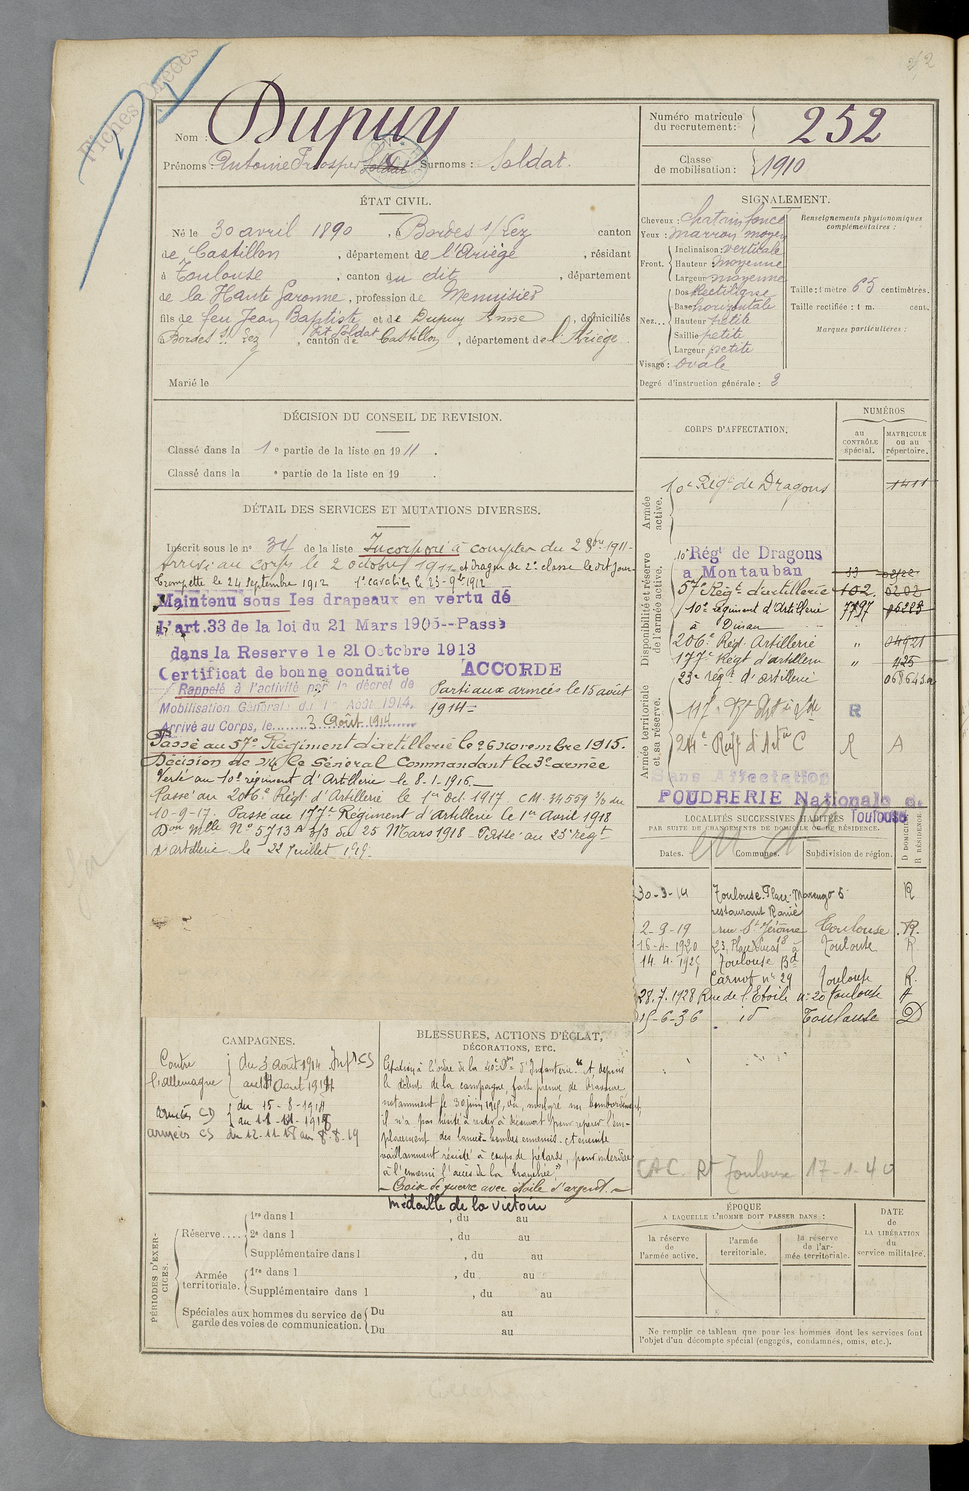 Fiches Créées
Nom : Dupuy
Prénoms : Antoine Prosper Surnoms : Soldat.
Numéro matricule du recrutement : 252
Classe de mobilisation : 1910
ÉTAT CIVIL.
Né le 30 avril 1890, Bordes s/Lez canton
de Castillon, département de l'Ariège, résidant
à Toulouse, canton du dit, département
de la Haute Garonne, profession de Menuisier
fils de feu Jean Baptiste et de Dupuy Anne, domiciliés
dit Soldat
Bordes s/ Lez, canton de Castillon, département de l'Ariège.
Marié le
SIGNALEMENT.
Cheveux : chatain foncé
Yeux : marron moyen
Front. Inclinaison : verticale
Hauteur : moyenne
Largeur : moyenne
Nez... Dos : rectiligne
Base : horizontale
Hauteur : petite
Saillie : petite
Largeur : petite
Visage : ovale
Degré d'instruction générale : 3
Renseignements physionomiques complémentaires :
Taille : 1 mètre 65 centimètres.
Taille rectifiée : 1 m. cent.
Marques particulières :
DÉCISION DU CONSEIL DE REVISION.
Classé dans la 1e partie de la liste en 1911.
Classé dans la e partie de la liste en 19 .
DÉTAIL DES SERVICES ET MUTATIONS DIVERSES.
Inscrit sous le n° 34 de la liste Incorporé à compter du 2 8bre 1911.
Arrivé au corps le 2 octobre 1911 et dragon de 2e classe le dit jour
Trompette le 24 septembre 1912 1e cavalier le 23-9bre 1912
Maintenu sous les drapeaux en vertu de
l'art. 33 de la loi du 21 Mars 1905--Passé
dans la Reserve le 21 Octobre 1913
Certificat de bonne conduite ACCORDE
Rappelé à l'activité par le décret de
Mobilisation Générale du 1er Août 1914.
Arrivé au Corps, le 3 Août 1914
Parti aux armées le 15 août
1914
Passé au 57e Régiment d'artillerie le 26 novembre 1915.
Décision de Mr le Général Commandant la 3e armée
Versé au 10e régiment d'Artillerie le 8-1-1916.
Passé au 206e Régt. d'Artillerie le 1er Oct. 1917 C.M. 34559 3/3 du
10-9-17. Passé au 177e Régiment d'Artillerie le 1er Avril 1918
Don Mlle No 5713 A 3/3 du 25 Mars 1918 Passé au 23e Régt
d'artillerie le 22 Juillet 1919.
CORPS D'AFFECTATION.
NUMÉROS
au CONTRÔLE spécial.
MATRICULE ou au répertoire.
Armée active.
10e Régt de Dragons 1411
Disponibilité et réserve de l'armée active.
10e Régt de Dragons
a Montauban
57e Régt d'artillerie 102. 0202
10e régiment d'Artillerie 7797
à Dinan
206e Régt Artillerie "
177e Régt d'artillerie " 425
23e régt d'artillerie
Armée territoriale et sa réserve.
117e R
24e C R A
Sans Affectation
POUDRERIE Nationale de
Toulouse
LOCALITÉS SUCCESSIVES HABITÉES
PAR SUITE DE CHANGEMENTS DE DOMICILE OU DE RÉSIDENCE.
Dates. Communes. Subdivision de région. D DOMICILE R RÉSIDENCE
30-3-14 Toulouse. Place Marengo 5 R
restaurant
2-9-19 rue St Jérôme Toulouse R.
16-4-1920 23, Toulouse R
14.4.1925 Toulouse Bd
Carnot n° 29 Toulouse R.
28.7.1928 Rue de l'Etoile n° 20 Toulouse A
15-6-36 id Toulouse D
CAC Rt Toulouse 17-1-40
CAMPAGNES.
Contre l'allemagne du 3 août 1914 Intr CS
au 14 Août 1914
armées CD du 15-8-1914
au 11-11-1918
armées CS du 12.11.18 au 8.8.19
BLESSURES, ACTIONS D'ÉCLAT,
DÉCORATIONS, ETC.
Citation à l'ordre de la 40e Don d'Infanterie. "A depuis
le début de la campagne, fait preuve de bravoure
notamment le 30 juin 1915, où, malgré un bombardement
il n'a pas hésité à rester à découvert pour repérer l'em-
placement des lance-bombes ennemis. A ensuite
vaillamment résisté à coups de pétards, pour interdire
à l'ennemi l'accès de la tranchée"
Croix de guerre avec étoile d'argent.
Médaille de la victoire
PÉRIODES D'EXERCICES.
Réserve.... 1re dans l , du au
2e dans l , du au
Supplémentaire dans l , du au
Armée territoriale. 1re dans l , du au
Supplémentaire dans l , du au
Spéciales aux hommes du service de garde des voies de communication. Du au
Du au
ÉPOQUE
A LAQUELLE L'HOMME DOIT PASSER DANS :
la réserve de l'armée active.
l'armée territoriale.
la réserve de l'armée territoriale.
DATE de LA LIBÉRATION du service militaire.
Ne remplir ce tableau que pour les hommes dont les services font
l'objet d'un décompte spécial (engagés, condamnés, omis, etc.).